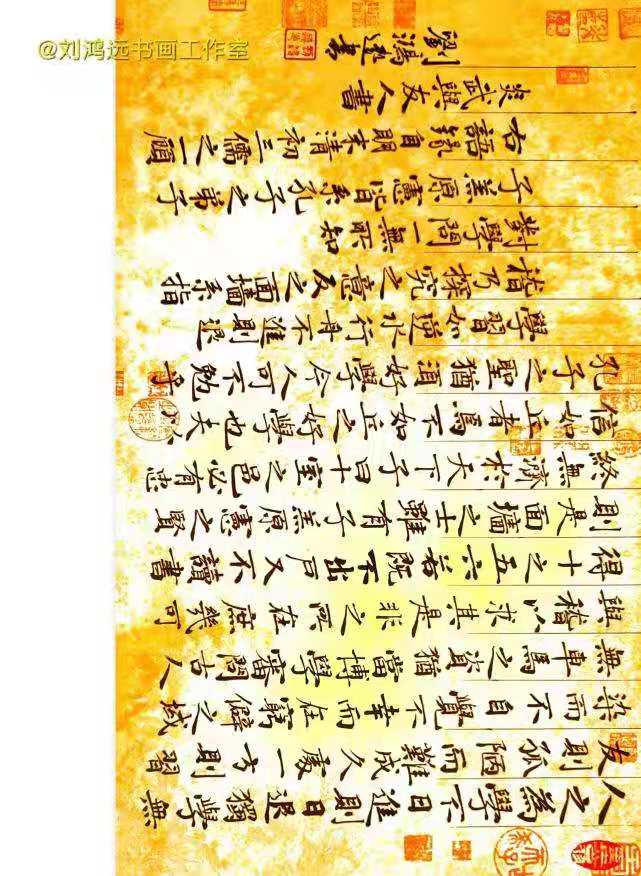 @刘鸿远书画工作室
人之為學不日進則日退獨學無
友則孤陋而難成久處一方則習
染而不自覺不幸而在窮僻之域
無車馬之資猶當博學審問古人
與稽以求其是非之所在庶幾可
得十之五六若既不出戶又不讀書
則是面墻之士雖有子羔原憲之賢
終無濟於天下子曰十室之邑必有忠
信如丘者焉不如丘之好學也夫以
孔子之聖猶須好學今人可不勉乎
學習如逆水行舟不進則退
稽乃探究之意反之面墻系指
對學問一無所知
子羔原憲皆系孔子之弟子
右語錄自明末清初三儒之一顧
炎武與友人書
劉鴻遠書